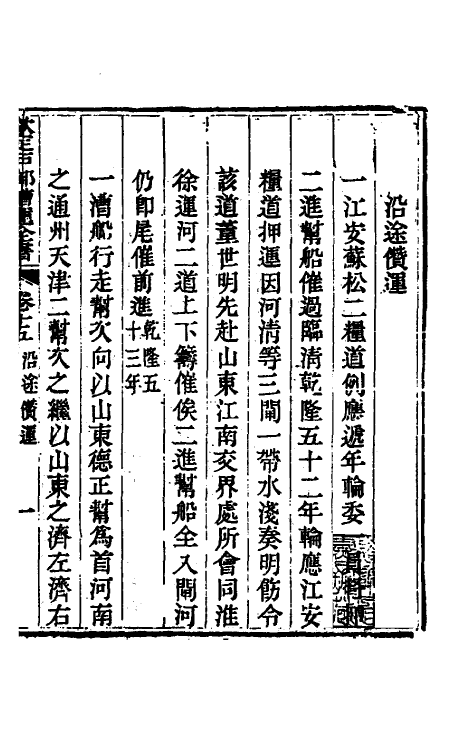 沿途儹運
一江安蘇松二糧道例應遞年輪委一員將頭
二進幫船催過臨清乾隆五十二年輪應江安
糧道押運因河清等三閘一帶水淺奏明飭令
該道董世明先赴山東江南交界處所會同淮
徐運河二道上下籌催俟二進幫船全入閘河
仍即尾催前進乾隆五十三年
一漕船行走幫次向以山東德正幫爲首河南
之通州天津二幫次之繼以山東之濟左濟右
欽定戶部漕運全書 卷十五 沿途儹運 一